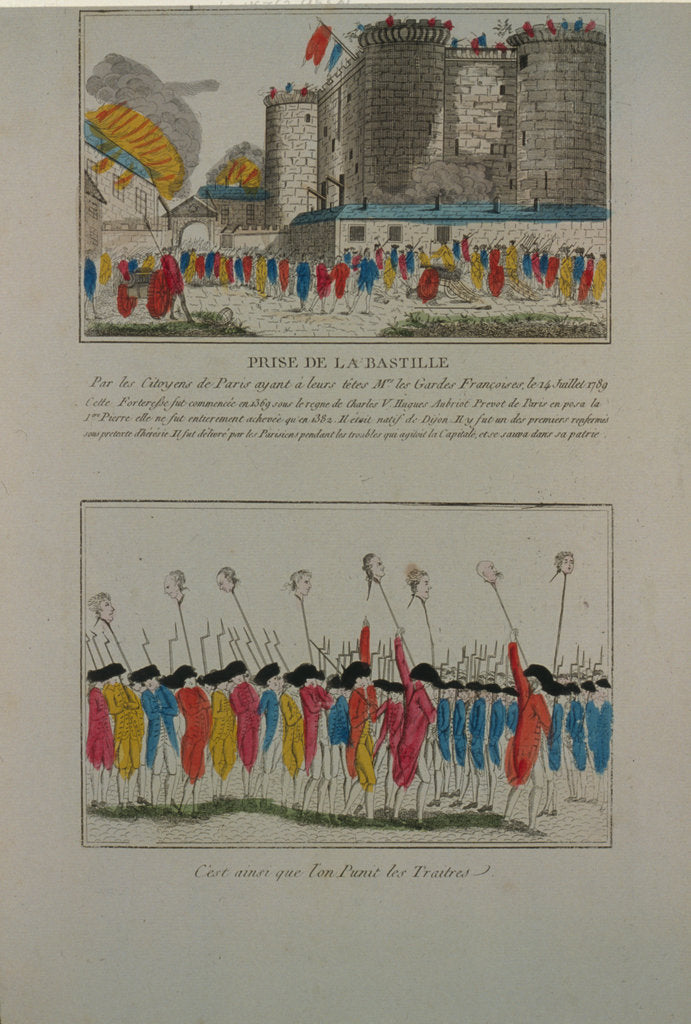 PRISE DE LA BASTILLE
Par les Citoyens de Paris ayant à leurs têtes Mrs les Gardes Françoises, le 14 Juillet 1789
Cette Forteresse fut commencée en 1369 sous le regne de Charles V. Hugues Aubriot Prevot de Paris en posa la
1ere Pierre elle ne fut entierement achevée qu'en 1382. Il étoit natif de Dijon. Il y fut un des premiers renfermés
sous pretexte d'hérésie. Il fut délivré par les Parisiens pendant les troubles qui agitoit la Capitale, et se sauva dans sa patrie
C'est ainsi que l'on Punit les Traitres.